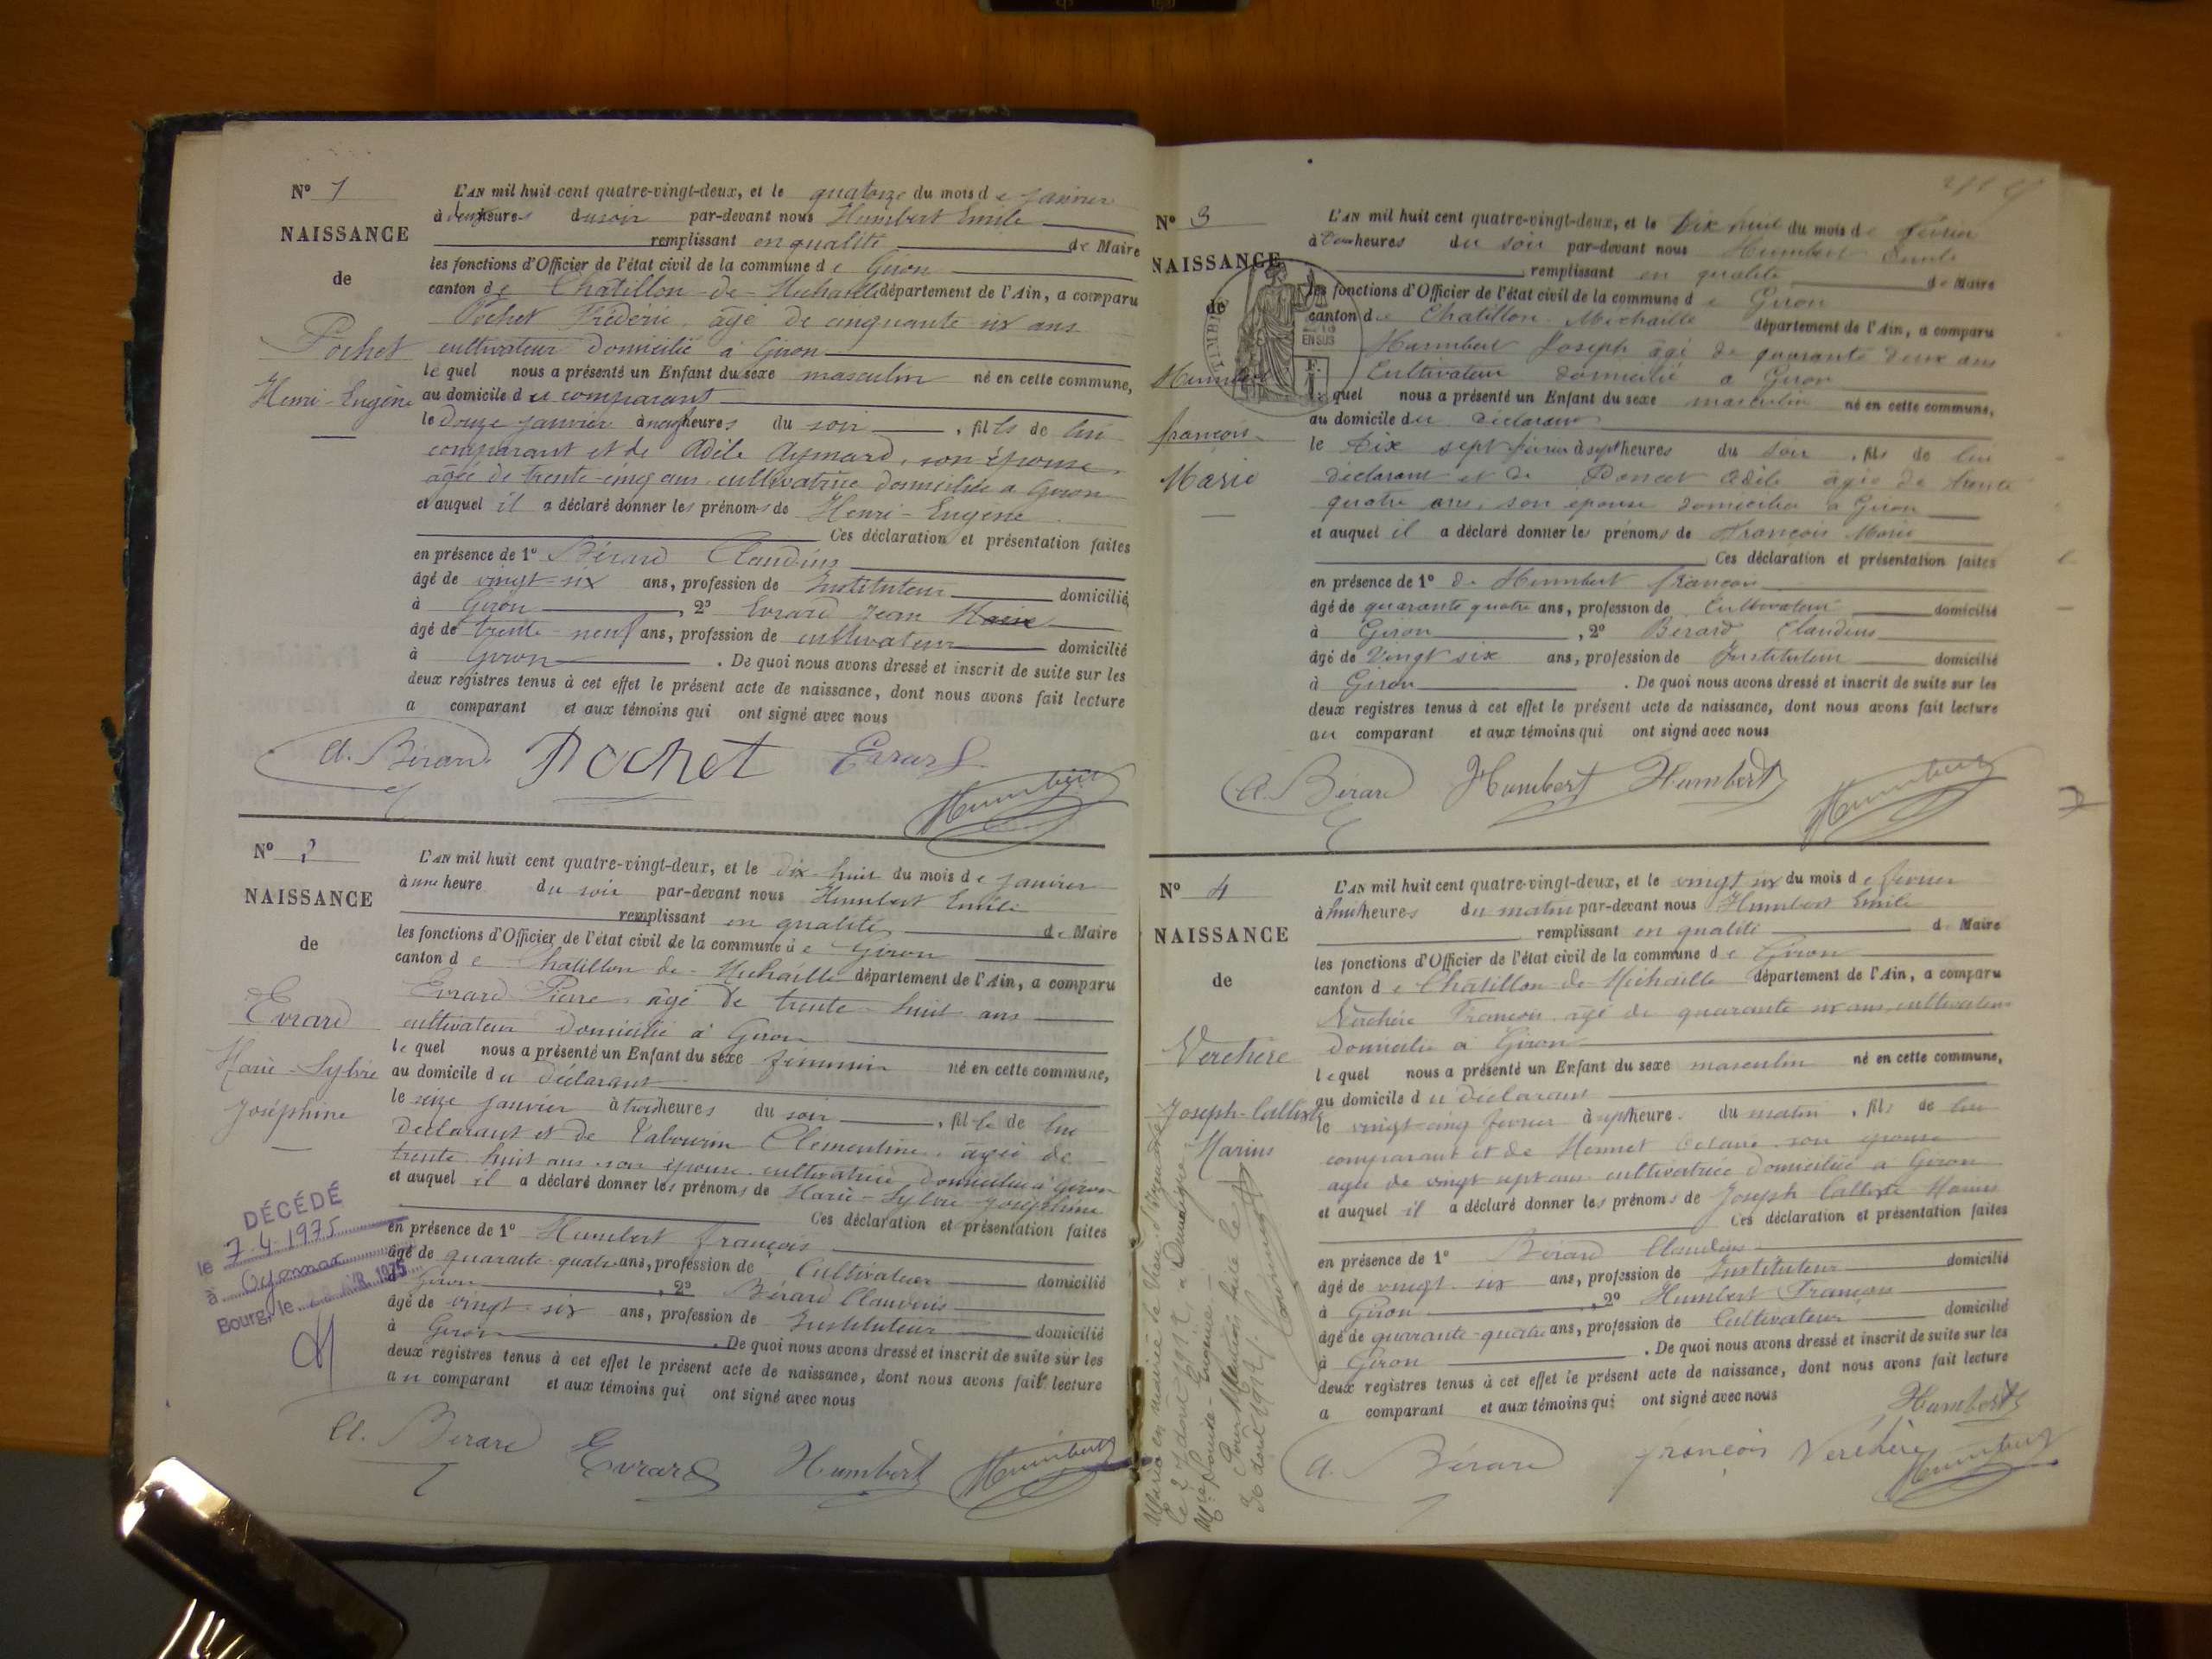 N° 1
NAISSANCE
de
Pochet
Henri-Eugène
L'AN mil huit cent quatre-vingt-deux, et le quatorze du mois de janvier
à deux heures du soir par-devant nous Humbert Emile
remplissant en qualité de Maire
les fonctions d'Officier de l'état civil de la commune de Giron
canton de Chatillon-de-Michaille département de l'Ain, a comparu
Pochet Fréderic âgé de cinquante six ans
cultivateur domicilié à Giron
lequel nous a présenté un Enfant du sexe masculin né en cette commune,
au domicile du comparant
le douze janvier à heures du soir, fils de lui
comparant et de Adèle Aymard, son épouse,
âgée de trente-cinq ans cultivatrice domiciliée a Giron
et auquel il a déclaré donner les prénoms de Henri-Eugène
Ces déclaration et présentation faites
en présence de 1° Bérard Claudius
âgé de vingt-six ans, profession de Instituteur domicilié
à Giron, 2° Evrard Jean
âgé de trente-neuf ans, profession de cultivateur domicilié
à Giron. De quoi nous avons dressé et inscrit de suite sur les
deux registres tenus à cet effet le présent acte de naissance, dont nous avons fait lecture
a comparant et aux témoins qui ont signé avec nous
Cl. Bérard Pochet Evrard
Humbert
N° 2
NAISSANCE
de
Evrard
Marie-Sylvie
Joséphine
DÉCÉDÉ
le 7-4-1975
à Oyonnax
Bourg, le 1975
L'AN mil huit cent quatre-vingt-deux, et le dix-huit du mois de janvier
à une heure du soir par-devant nous Humbert Emile
remplissant en qualité de Maire
les fonctions d'Officier de l'état civil de la commune de Giron
canton de Chatillon de-Michaille département de l'Ain, a comparu
Evrard Pierre âgé de trente-huit ans
cultivateur domicilié à Giron
lequel nous a présenté un Enfant du sexe féminin né en cette commune,
au domicile du déclarant
le seize janvier à trois heures du soir, fille de lui
déclarant et de Tabourin Clémentine, âgée de
trente huit ans son épouse cultivatrice domiciliée à Giron
et auquel il a déclaré donner les prénoms de Marie-Sylvie-Joséphine
Ces déclaration et présentation faites
en présence de 1° Humbert françois
âgé de quarante-quatre ans, profession de Cultivateur domicilié
à Giron, 2° Bérard Claudius
âgé de vingt-six ans, profession de Instituteur domicilié
à Giron. De quoi nous avons dressé et inscrit de suite sur les
deux registres tenus à cet effet le présent acte de naissance, dont nous avons fait lecture
au comparant et aux témoins qui ont signé avec nous
Cl. Bérard Evrard Humbert Humbert
N° 3
NAISSANCE
de
Humbert
françois
Marie
L'AN mil huit cent quatre-vingt-deux, et le Dix huit du mois de février
à heures du soir par-devant nous Humbert Emile
remplissant en qualité de Maire
les fonctions d'Officier de l'état civil de la commune de Giron
canton de Chatillon Michaille département de l'Ain, a comparu
Humbert Joseph âgé de quarante deux ans
Cultivateur domicilié a Giron
lequel nous a présenté un Enfant du sexe masculin né en cette commune,
au domicile du déclarant
le Dix sept février à sept heures du soir, fils de lui
déclarant et de Poncet Adèle âgée de trente
quatre ans, son épouse domiciliée a Giron
et auquel il a déclaré donner les prénoms de François Marie
Ces déclaration et présentation faites
en présence de 1° de Humbert françois
âgé de quarante quatre ans, profession de Cultivateur domicilié
à Giron, 2° Bérard Claudius
âgé de Vingt six ans, profession de Instituteur domicilié
à Giron. De quoi nous avons dressé et inscrit de suite sur les
deux registres tenus à cet effet le présent acte de naissance, dont nous avons fait lecture
au comparant et aux témoins qui ont signé avec nous
Cl. Bérard Humbert Humbert Humbert
N° 4
NAISSANCE
de
Verchère
Joseph-Callixte
Marius
L'AN mil huit cent quatre-vingt-deux, et le vingt six du mois de février
à huit heures du matin par-devant nous Humbert Emile
remplissant en qualité de Maire
les fonctions d'Officier de l'état civil de la commune de Giron
canton de Chatillon-de Michaille département de l'Ain, a comparu
Verchère François âgé de quarante six ans cultivateur
domicilié à Giron
lequel nous a présenté un Enfant du sexe masculin né en cette commune,
au domicile du déclarant
le vingt-cinq février à sept heure du matin, fils de lui
comparant et de Monnet son épouse
agée de vingt sept ans cultivatrice domiciliée a Giron
et auquel il a déclaré donner les prénoms de Joseph Callixte Marius
Ces déclaration et présentation faites
en présence de 1° Bérard Claudius
âgé de vingt-six ans, profession de Instituteur domicilié
à Giron, 2° Humbert François
âgé de quarante-quatre ans, profession de Cultivateur domicilié
à Giron. De quoi nous avons dressé et inscrit de suite sur les
deux registres tenus à cet effet le présent acte de naissance, dont nous avons fait lecture
a comparant et aux témoins qui ont signé avec nous
Humbert
Cl. Bérard françois Verchère Humbert
Marié en mairie de
le 27 août 1912 à
Louise-Eugénie
Pour Mention faite le
30 août 1912